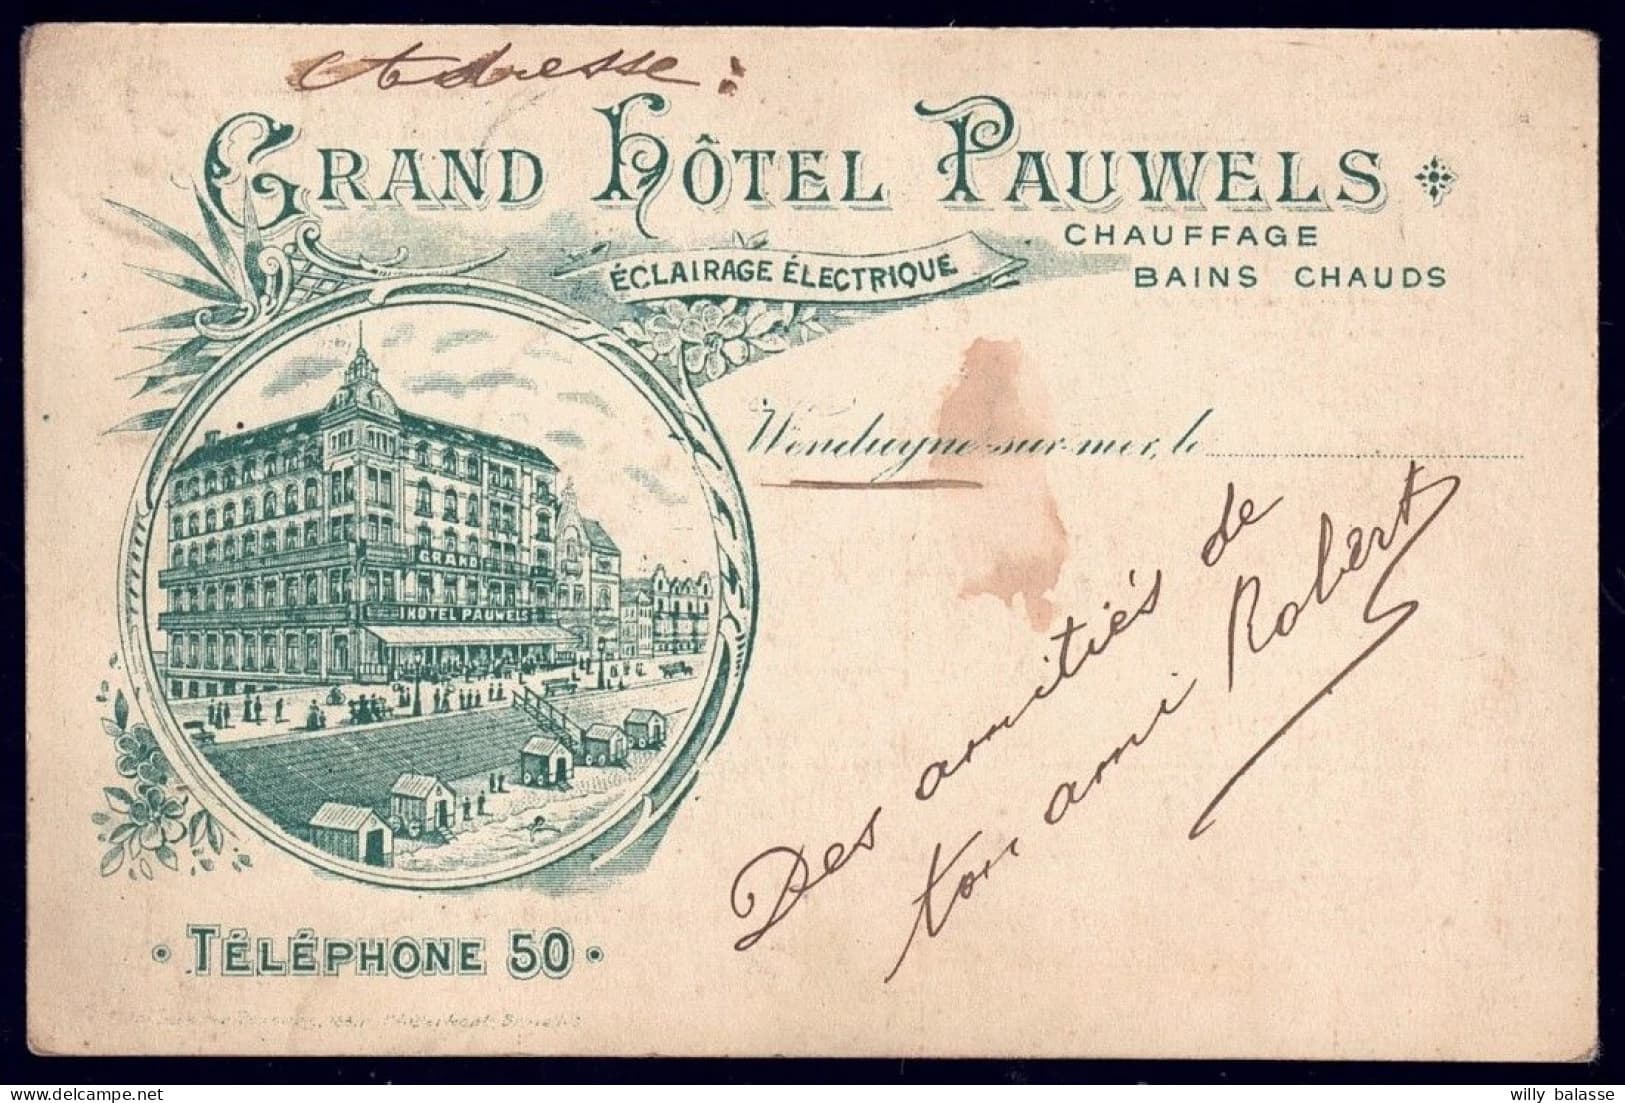 Adresse :
GRAND HÔTEL PAUWELS
CHAUFFAGE
ÉCLAIRAGE ÉLECTRIQUE
BAINS CHAUDS
Wenduyne-sur-mer, le
GRAND
HOTEL PAUWELS
Des amitiés de
ton ami Robert
• TÉLÉPHONE 50 •
willy balasse